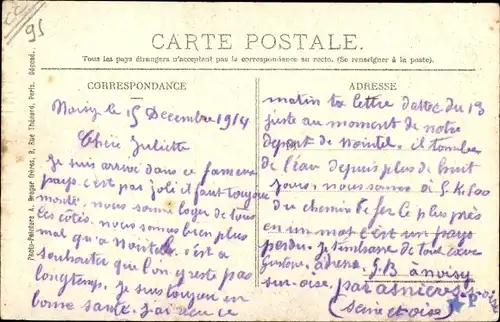 95
CARTE POSTALE.
Tous les pays étrangers n'acceptent pas la correspondance au recto. (Se renseigner à la poste).
CORRESPONDANCE
Noisy le 15 Decembre 1914
Chère Juliette
Je suis arrivé dans ce fameux
pays c'est pas joli il faut toujour
monté, nous some loger de tous
les côtés. nous sommes bien plus
mal qu'a Nointel. s'est a
souhaiter que l'on y reste pas
longtemps. Je suis toujour en
bonne santé. J'ai reçu ce
ADRESSE
matin ta lettre datée du 13
juste au moment de notre
depart de Nointel. il tombe
de l'eau depuis plus de huit
jours, nous sommes à 5 K 500
du chemin de fer le plus près
en un mot c'est un pays
perdu. je t'embrasse de tout cœur
Gustave. adresse G.B à noisy
sur-oise, par asnières-s-oise
(seine et oise)
P
Photo-Peinture A. Breger frères, 9, Rue Thénard, Paris. Déposé.